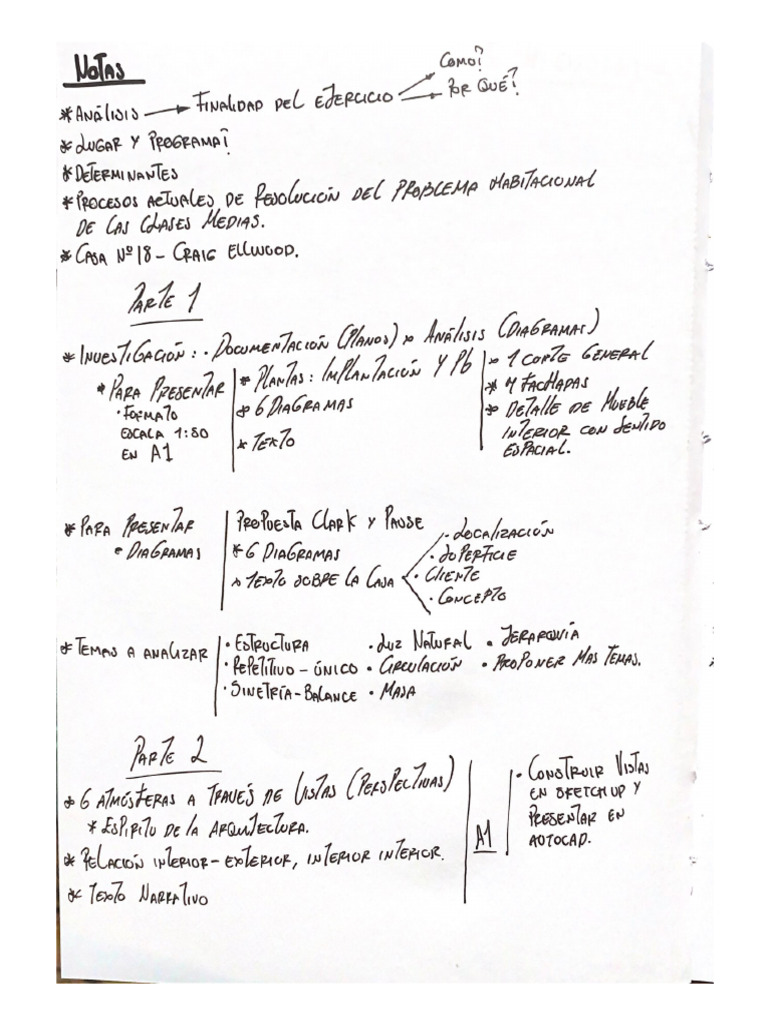 NOTAS
* ANÁLISIS → FINALIDAD DEL EJERCICIO → COMO?
→ POR QUÉ?
* LUGAR Y PROGRAMA?
* DETERMINANTES
* PROCESOS ACTUALES DE RESOLUCIÓN DEL PROBLEMA HABITACIONAL
DE LAS CLASES MEDIAS.
* CASA Nº18 - CRAIG ELLWOOD.
PARTE 1
* INVESTIGACIÓN: · DOCUMENTACIÓN (PLANOS) ANÁLISIS (DIAGRAMAS)
* PARA PRESENTAR
· FORMATO
ESCALA 1:50
EN A1
* PLANTAS: IMPLANTACIÓN Y PB
* 6 DIAGRAMAS
* TEXTO
* 1 CORTE GENERAL
* 4 FACHADAS
* DETALLE DE MUEBLE
INTERIOR CON SENTIDO
ESPACIAL.
* PARA PRESENTAR
· DIAGRAMAS
PROPUESTA CLARK Y PAUSE
* 6 DIAGRAMAS
* TEXTO SOBRE LA CASA
· LOCALIZACIÓN
· SUPERFICIE
· CLIENTE
· CONCEPTO
* TEMAS A ANALIZAR
· ESTRUCTURA
· REPETITIVO - ÚNICO
· SIMETRÍA - BALANCE
· LUZ NATURAL
· CIRCULACIÓN
· MASA
· JERARQUÍA
· PROPONER MAS TEMAS.
PARTE 2
* 6 ATMÓSFERAS A TRAVÉS DE VISTAS (PERSPECTIVAS)
* ESPIRITU DE LA ARQUITECTURA.
* RELACIÓN INTERIOR - EXTERIOR, INTERIOR INTERIOR.
* TEXTO NARRATIVO
A1
· CONSTRUIR VISTAS
EN SKETCHUP Y
PRESENTAR EN
AUTOCAD.